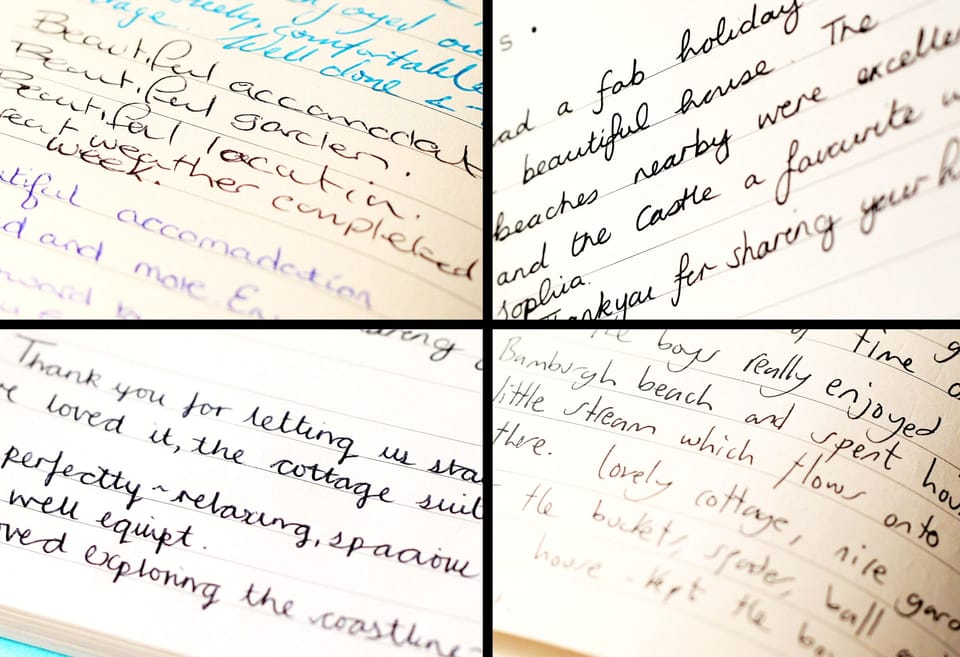 njoyed ou
age. lovely, comfortable
Well done &
Beautiful accomodat
Beautiful garden.
Beautiful location.
eat weather completed
week.
utiful accomadation
d and more. En
ward to
s.
ad a fab holiday
beautiful house. The
beaches nearby were excellen
and the Castle a favourite w
Sophia.
Thankyou for sharing your h
aring
Thank you for letting us sta
ve loved it, the cottage suit
perfectty ~ relaxing, spaciou
well equipt.
oved exploring the coastline
of time
the boys really enjoyed
Bamburgh beach and spent hou
little stream which flows onto
there. lovely cottage, nice gard
the buckets, spades, ball
house - kept the bo